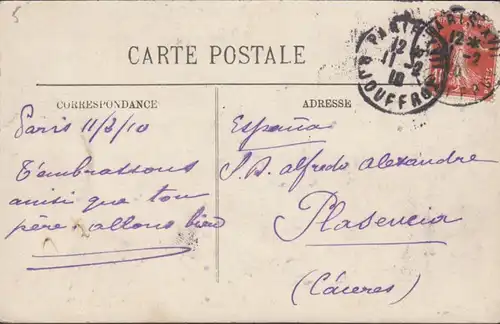 5
CARTE POSTALE
CORRESPONDANCE
Paris 11/2/10
T'embrassons
ainsi que ton
père. allons bien
ADRESSE
España
S. D. Alfredo Alexandre
Plasencia
(Cáceres)
PARIS XVII
12
11 -2
10
R. JOUFFROY
PARIS XVII
12
-2